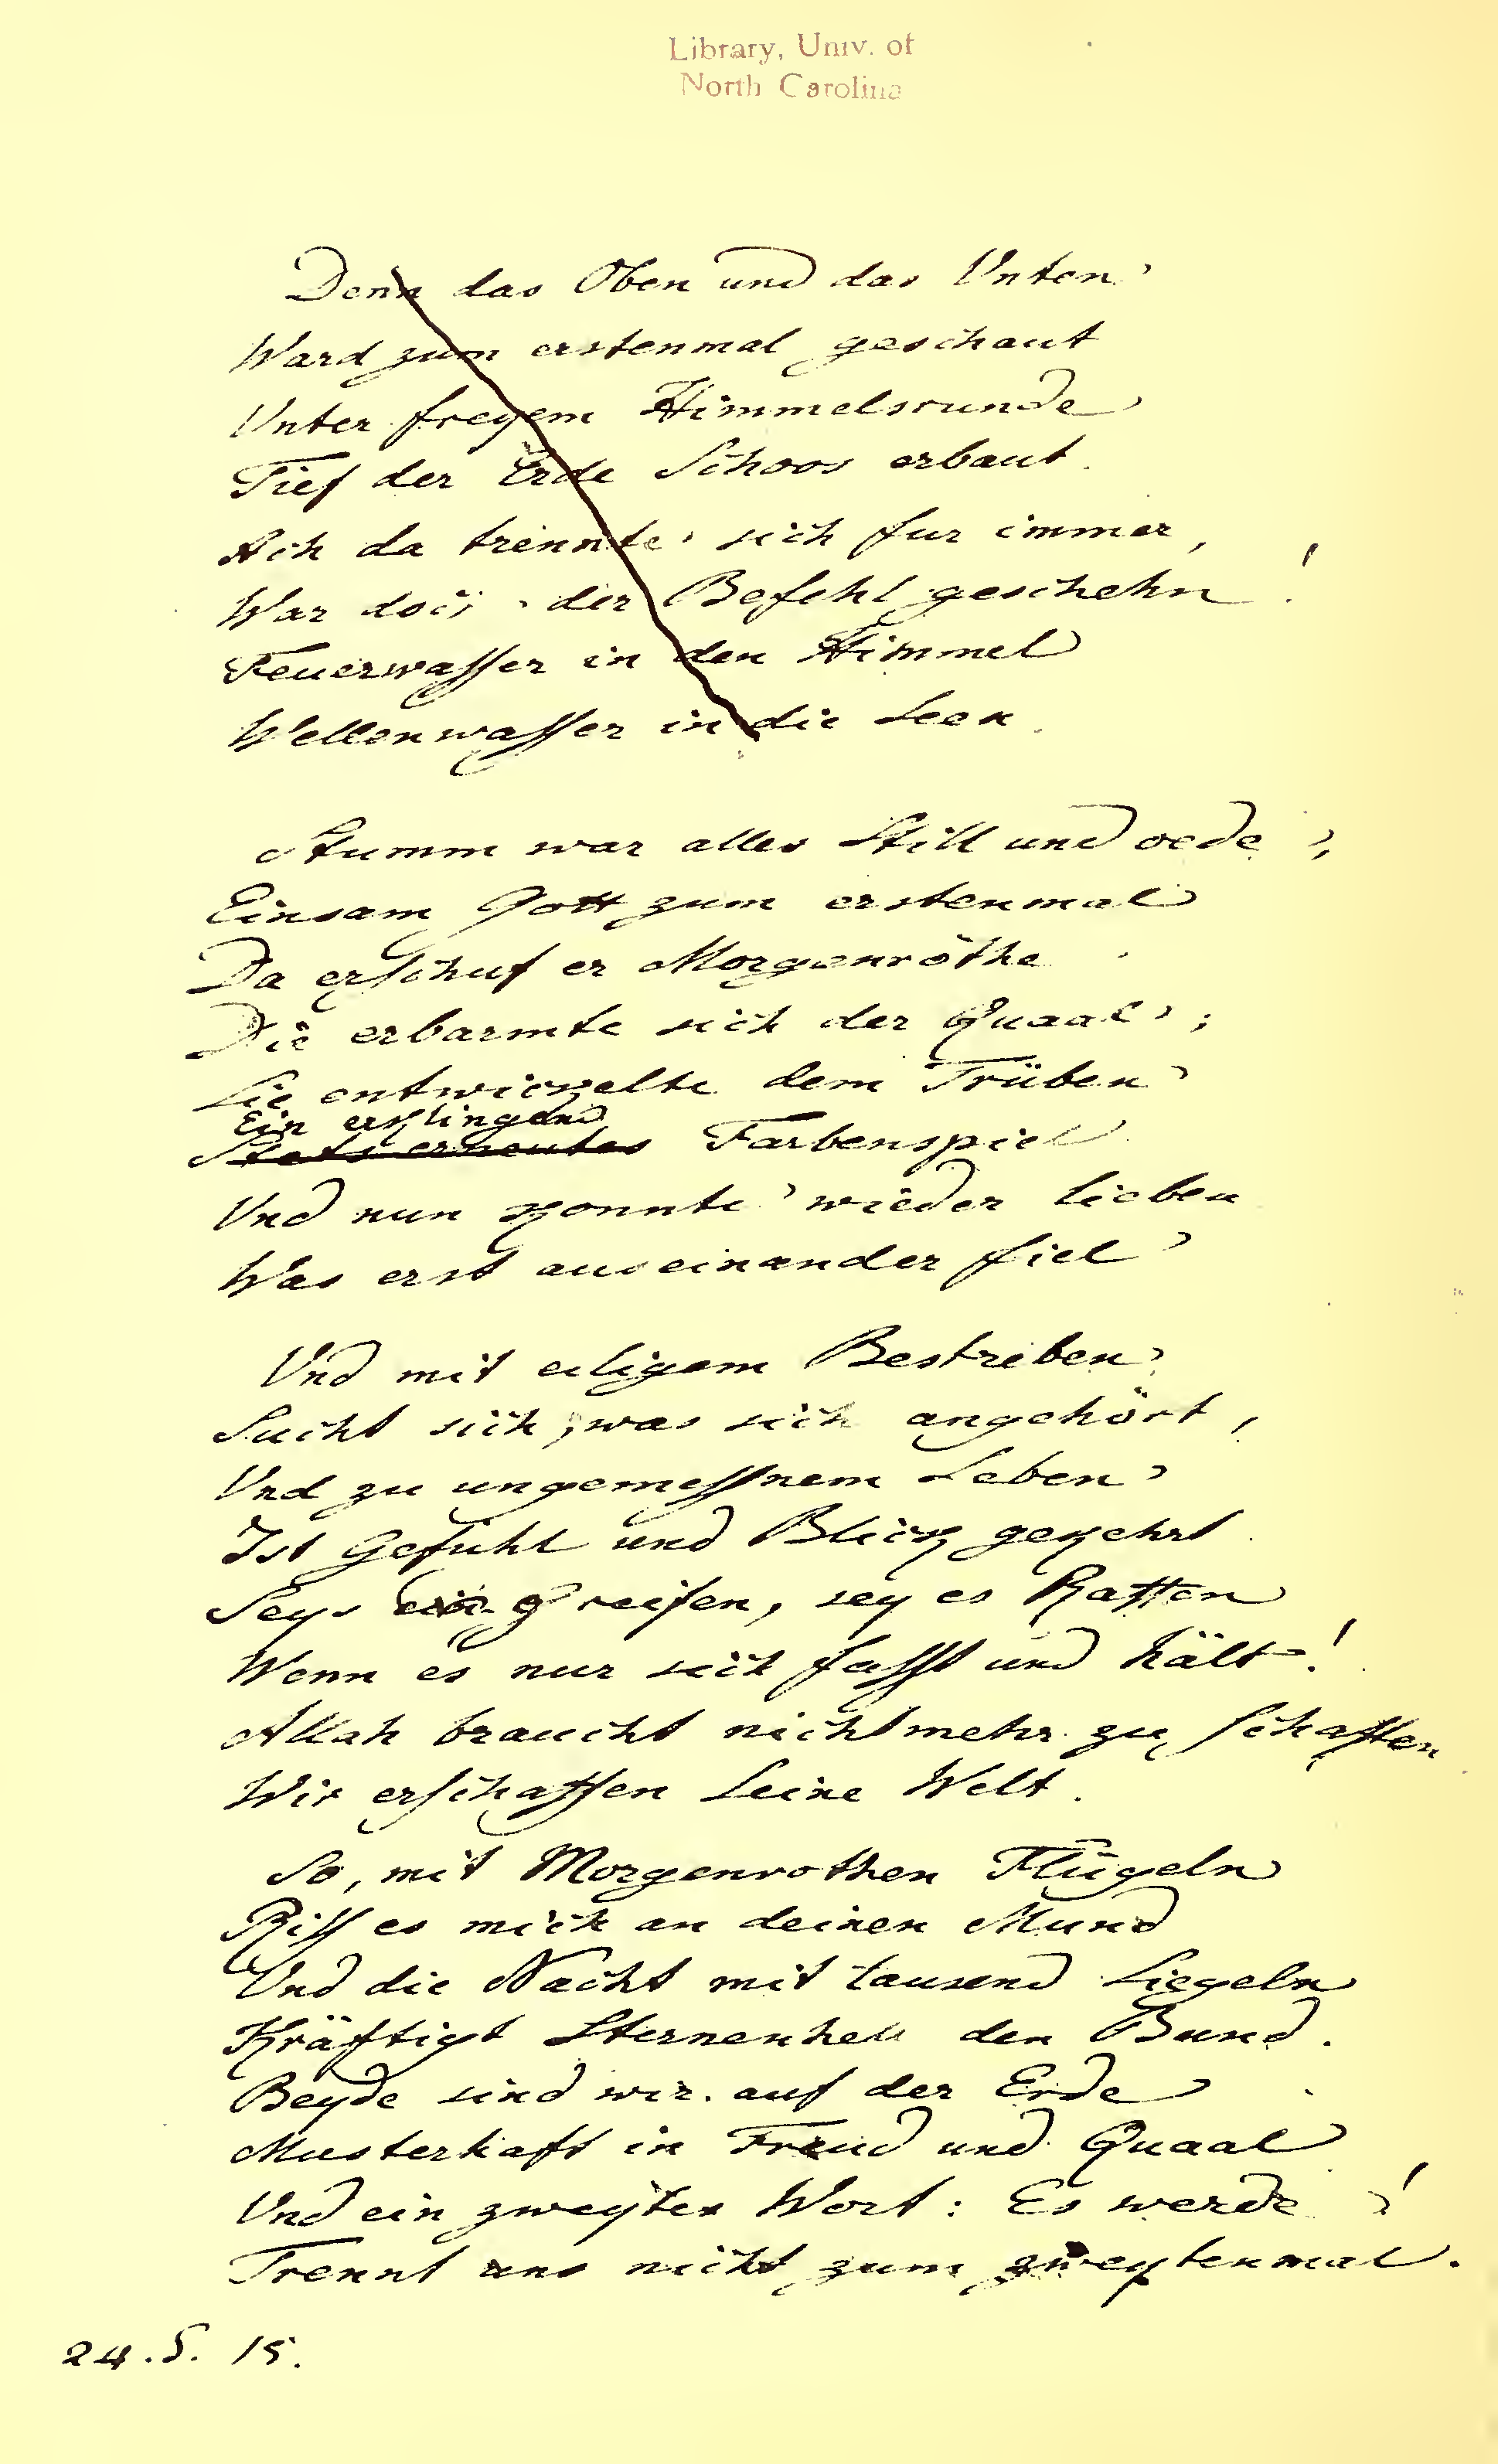 Library, Univ. of
North Carolina
Denn das Oben und das Unten
Ward zum erstenmal geschaut
Unter freyem Himmelsrunde
Tief der Erde Schoos erbaut.
Ach da trennte sich fur immer,
War doch der Befehl geschehn!
Feuerwasser in den Himmel
Wellenwasser in die Seen.
Stumm war alles still und oede,
Einsam Gott zum erstenmal
Da erschuf er Morgenröthe
Die erbarmte sich der Quaal;
Sie entwickelte dem Trüben
Ein erklingend
Stets erneutes Farbenspiel
Und nun konnte wieder lieben
Was erst auseinander fiel
Und mit eiligem Bestreben
Sucht sich, was sich angehört,
Und zu ungemessnem Leben
Ist Gefühl und Blick gekehrt.
Seys ein Greifen, sey es Raffen
Wenn es nur sich fasst und hält!
Allah braucht nicht mehr zu schaffen
Wir erschaffen Seine Welt.
So, mit Morgenrothen Flügeln
Riss es mich an deinen Mund
Und die Nacht mit tausend Siegeln
Kräftigt Sternenhell den Bund.
Beyde sind wir auf der Erde
Musterhaft in Freud und Quaal
Und ein zweytes Wort: Es werde!
Trennt uns nicht zum zweytenmal.
24. S. 15.